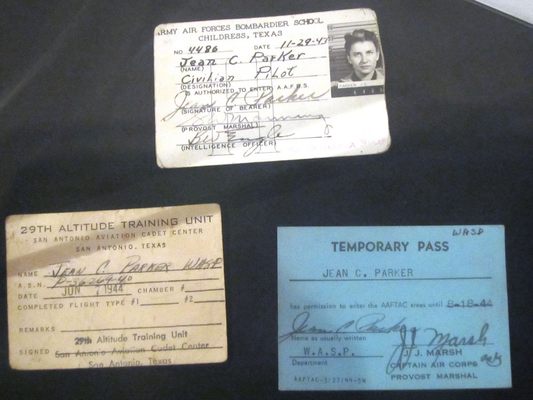 ARMY AIR FORCES BOMBARDIER SCHOOL
CHILDRESS, TEXAS
NO 4486 DATE 11-29-43
Jean C. Parker
(NAME)
Civilian Pilot
(DESIGNATION)
IS AUTHORIZED TO ENTER A.A.F.B.S.
Jean C Parker
(SIGNATURE OF BEARER)
(PROVOST MARSHAL)
(INTELLIGENCE OFFICER)
29TH ALTITUDE TRAINING UNIT
SAN ANTONIO AVIATION CADET CENTER
SAN ANTONIO, TEXAS
NAME JEAN C. PARKER WASP
A.S.N.
DATE JUN 1944 CHAMBER #
COMPLETED FLIGHT TYPE #1 #2
REMARKS
29th Altitude Training Unit
SIGNED San Antonio Aviation Cadet Center
San Antonio, Texas
WASP
TEMPORARY PASS
JEAN C. PARKER
has permission to enter the AAFTAC areas until 8-18-44
Jean C Parker
Name as usually written
J J Marsh
W.A.S.P.
J. J. MARSH
Department
CAPTAIN AIR CORPS
PROVOST MARSHAL